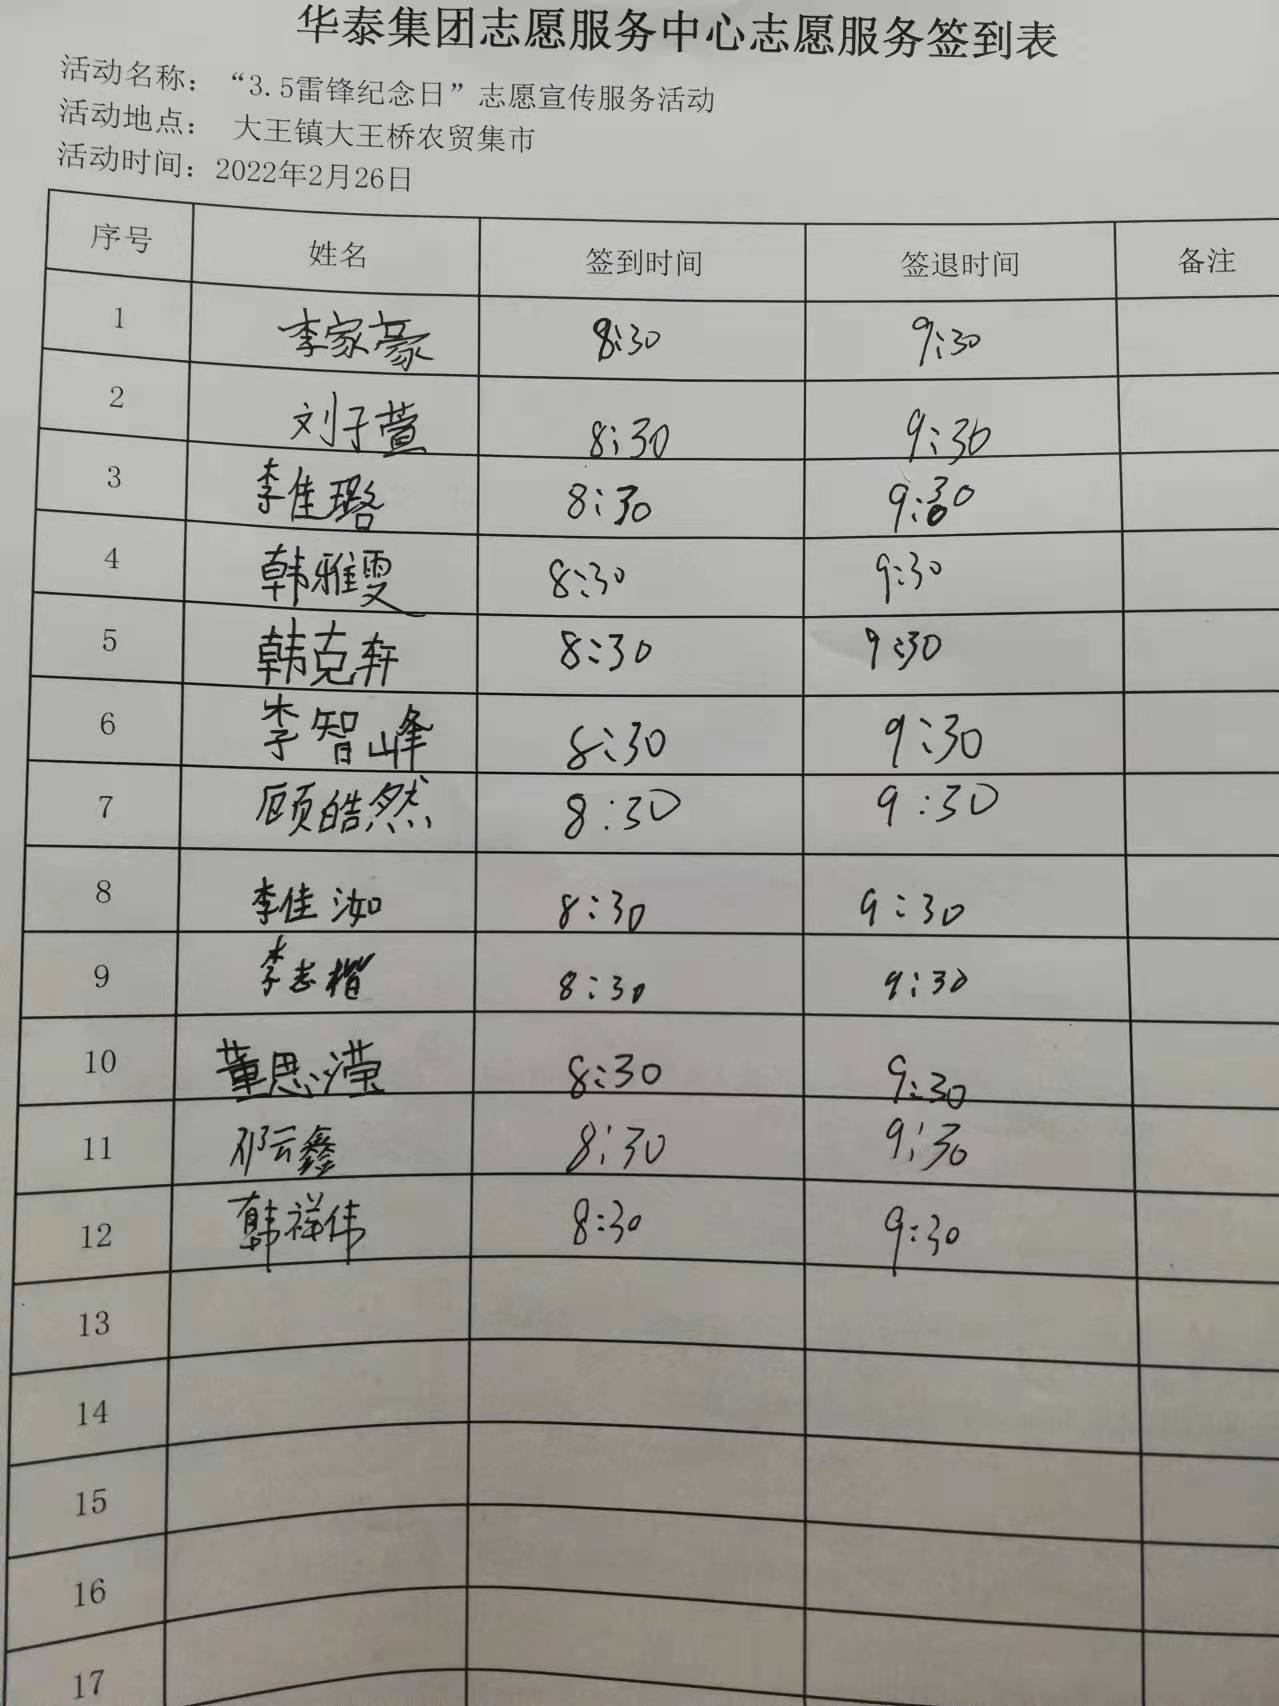 华泰集团志愿服务中心志愿服务签到表
活动名称：“3.5雷锋纪念日”志愿宣传服务活动
活动地点： 大王镇大王桥农贸集市
活动时间：2022年2月26日
序号 姓名 签到时间 签退时间 备注
1 李家豪 8:30 9:30
2 刘子萱 8:30 9:30
3 李佳璐 8:30 9:30
4 韩雅雯 8:30 9:30
5 韩克轩 8:30 9:30
6 李智峰 8:30 9:30
7 顾皓然 8:30 9:30
8 李佳汝 8:30 9:30
9 李志楷 8:30 9:30
10 董思滢 8:30 9:30
11 云鑫 8:30 9:30
12 韩祥伟 8:30 9:30
13
14
15
16
17